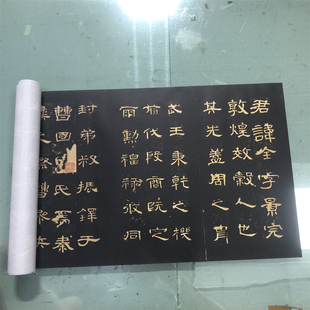 君諱全字景完
敦煌效穀人也
其先蓋周之胄
武王秉乾之機
翦伐殷商既定
爾勳福祿攸同
封弟叔振鐸于
曹國
氏焉秦